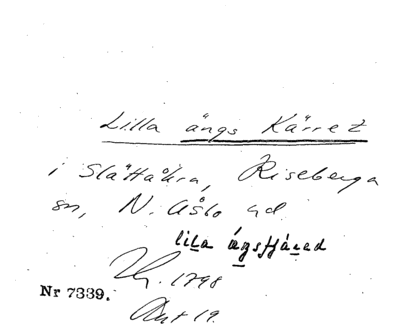 Lilla ängs Kärret
i Slättåkra, Riseberga
sn, N. Åsbo hd
lila ägsfjäräd
1798
Nr 7339.
Akt 19.